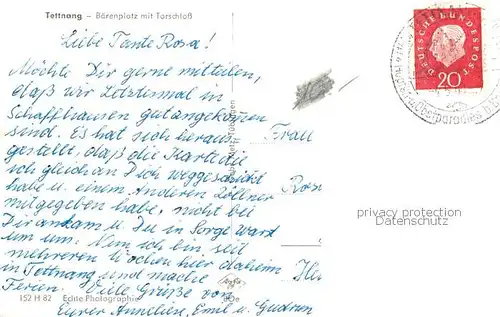 Tettnang – Bärenplatz mit Torschloß
Liebe Tante Rosa!
Möchte Dir gerne mitteilen,
daß wir Letztesmal in
Schaffhausen gut angekommen
sind. Es hat sich heraus
gestellt, daß die Karte die
ich gleich an Dich weggeschickt
habe u. einem Anderen Zöllner
mitgegeben habe, nicht bei
Dir ankam u. Du in Sorge warst
um uns. Nun ich ein seit
mehreren Wochen hier daheim
in Tettnang und mache
Ferien. Viele Grüße von
Eurer Annelies, Emil u. Gudrun
Frau
Rosa
152 H 82 Echte Photographie
DEUTSCHE BUNDESPOST
20
privacy protection
Datenschutz